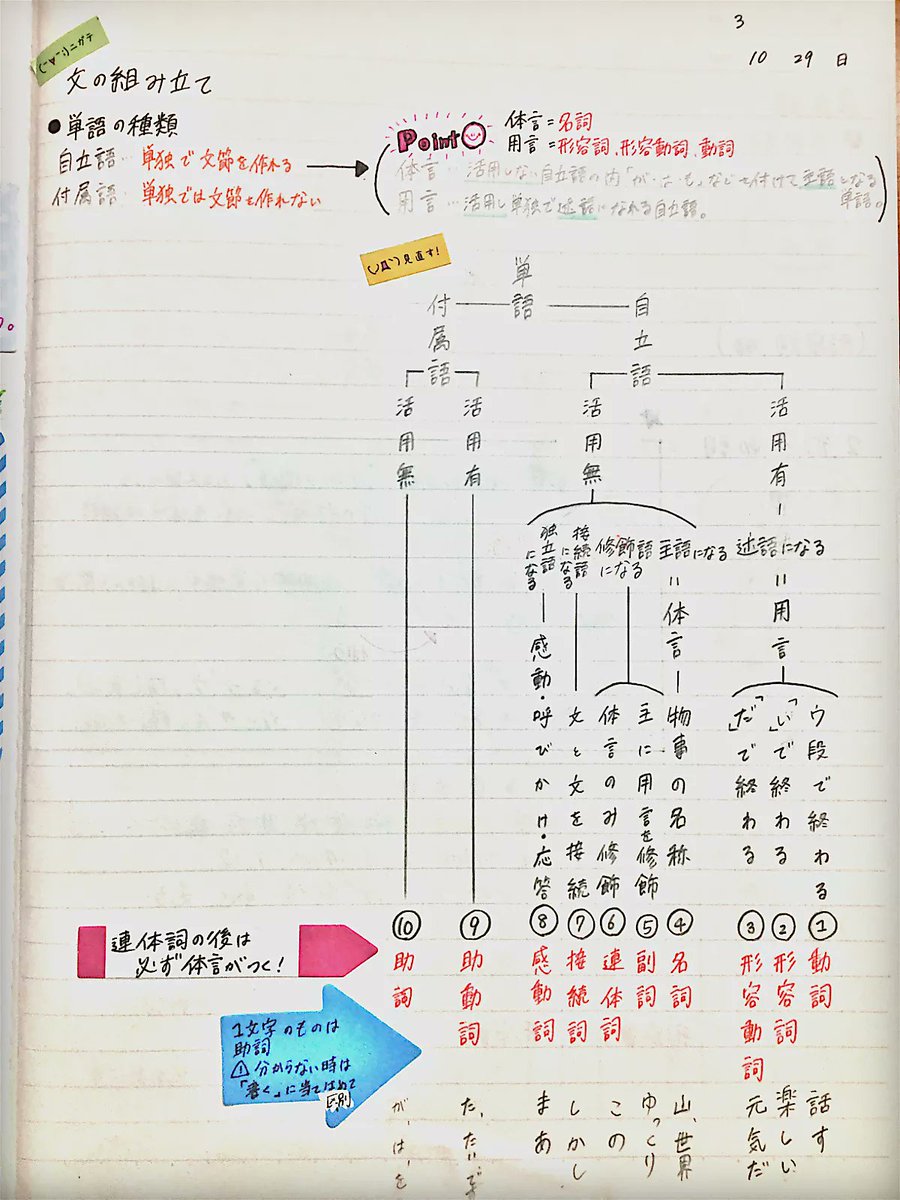 3
10 29 日
(-∀-;)ニガテ
文の組み立て
●単語の種類
自立語…単独で文節を作れる
付属語…単独では文節を作れない
Point
体言=名詞
用言=形容詞、形容動詞、動詞
体言…活用しない自立語の内「が・は・も」などを付けて主語になる
単語。
用言…活用し単独で述語になれる自立語。
見直す!
単語
自立語
付属語
活用有
活用無
活用有
活用無
述語になる=用言
主語になる=体言
修飾語になる
接続語になる
独立語になる
ウ段で終わる
「い」で終わる
「だ」で終わる
物事の名称
主に用言を修飾
体言のみ修飾
文と文を接続
感動・呼びかけ・応答
①動詞 話す
②形容詞 楽しい
③形容動詞 元気だ
④名詞 山、世界
⑤副詞 ゆっくり
⑥連体詞 この
⑦接続詞 しかし
⑧感動詞 まあ
⑨助動詞 た、たい
⑩助詞 が、は、を
連体詞の後は
必ず体言がつく!
1文字のものは
助詞
⚠分からない時は
「書く」に当てはめて
区別